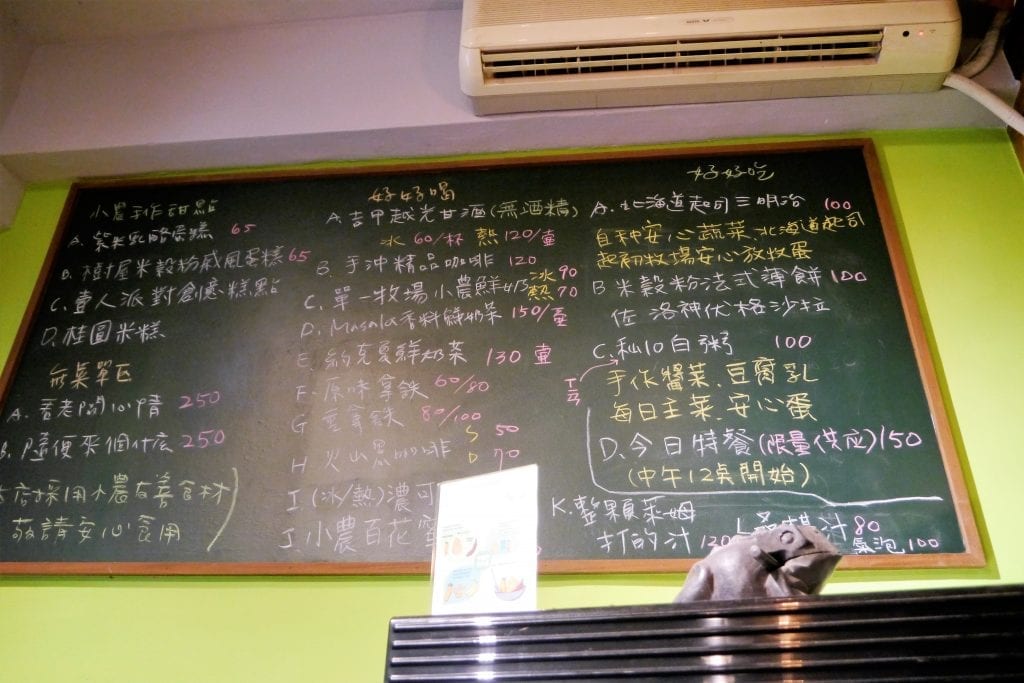 小農手作甜點
A. 紫米乳酪蛋糕 65
B. 樹屋米穀粉戚風蛋糕 65
C. 壹人派對創意糕點
D. 桂圓米糕
無菜單區
A. 看老闆心情 250
B. 隨便來個什么 250
本店採用小農友善食材
敬請安心食用
好好喝
A. 吉甲越光甘酒(無酒精)
冰 60/杯 熱 120/壺
B. 手沖精品咖啡 120
C. 單一牧場小農鮮奶 冰 90
熱 70
D. Masala香料鮮奶茶 150/壺
E. 約克夏鮮奶茶 130 壺
F. 原味拿鐵 60/80
G. 拿鐵 80/100
H 火山黑咖啡 S 50
D 70
I (冰/熱)濃可
J. 小農百花蜜
好好吃
A. 北海道起司三明治 100
自种安心蔬菜、北海道起司
起初牧場安心放牧蛋
B 米穀粉法式薄餅 100
佐 洛神伏格沙拉
C. 私10白粥 100
手作醬菜、豆腐乳
每日主菜、安心蛋
D. 今日特餐(限量供应)150
(中午12点開始)
K. 整顆萊姆
打的汁 120
L 汁 80
氣泡 100